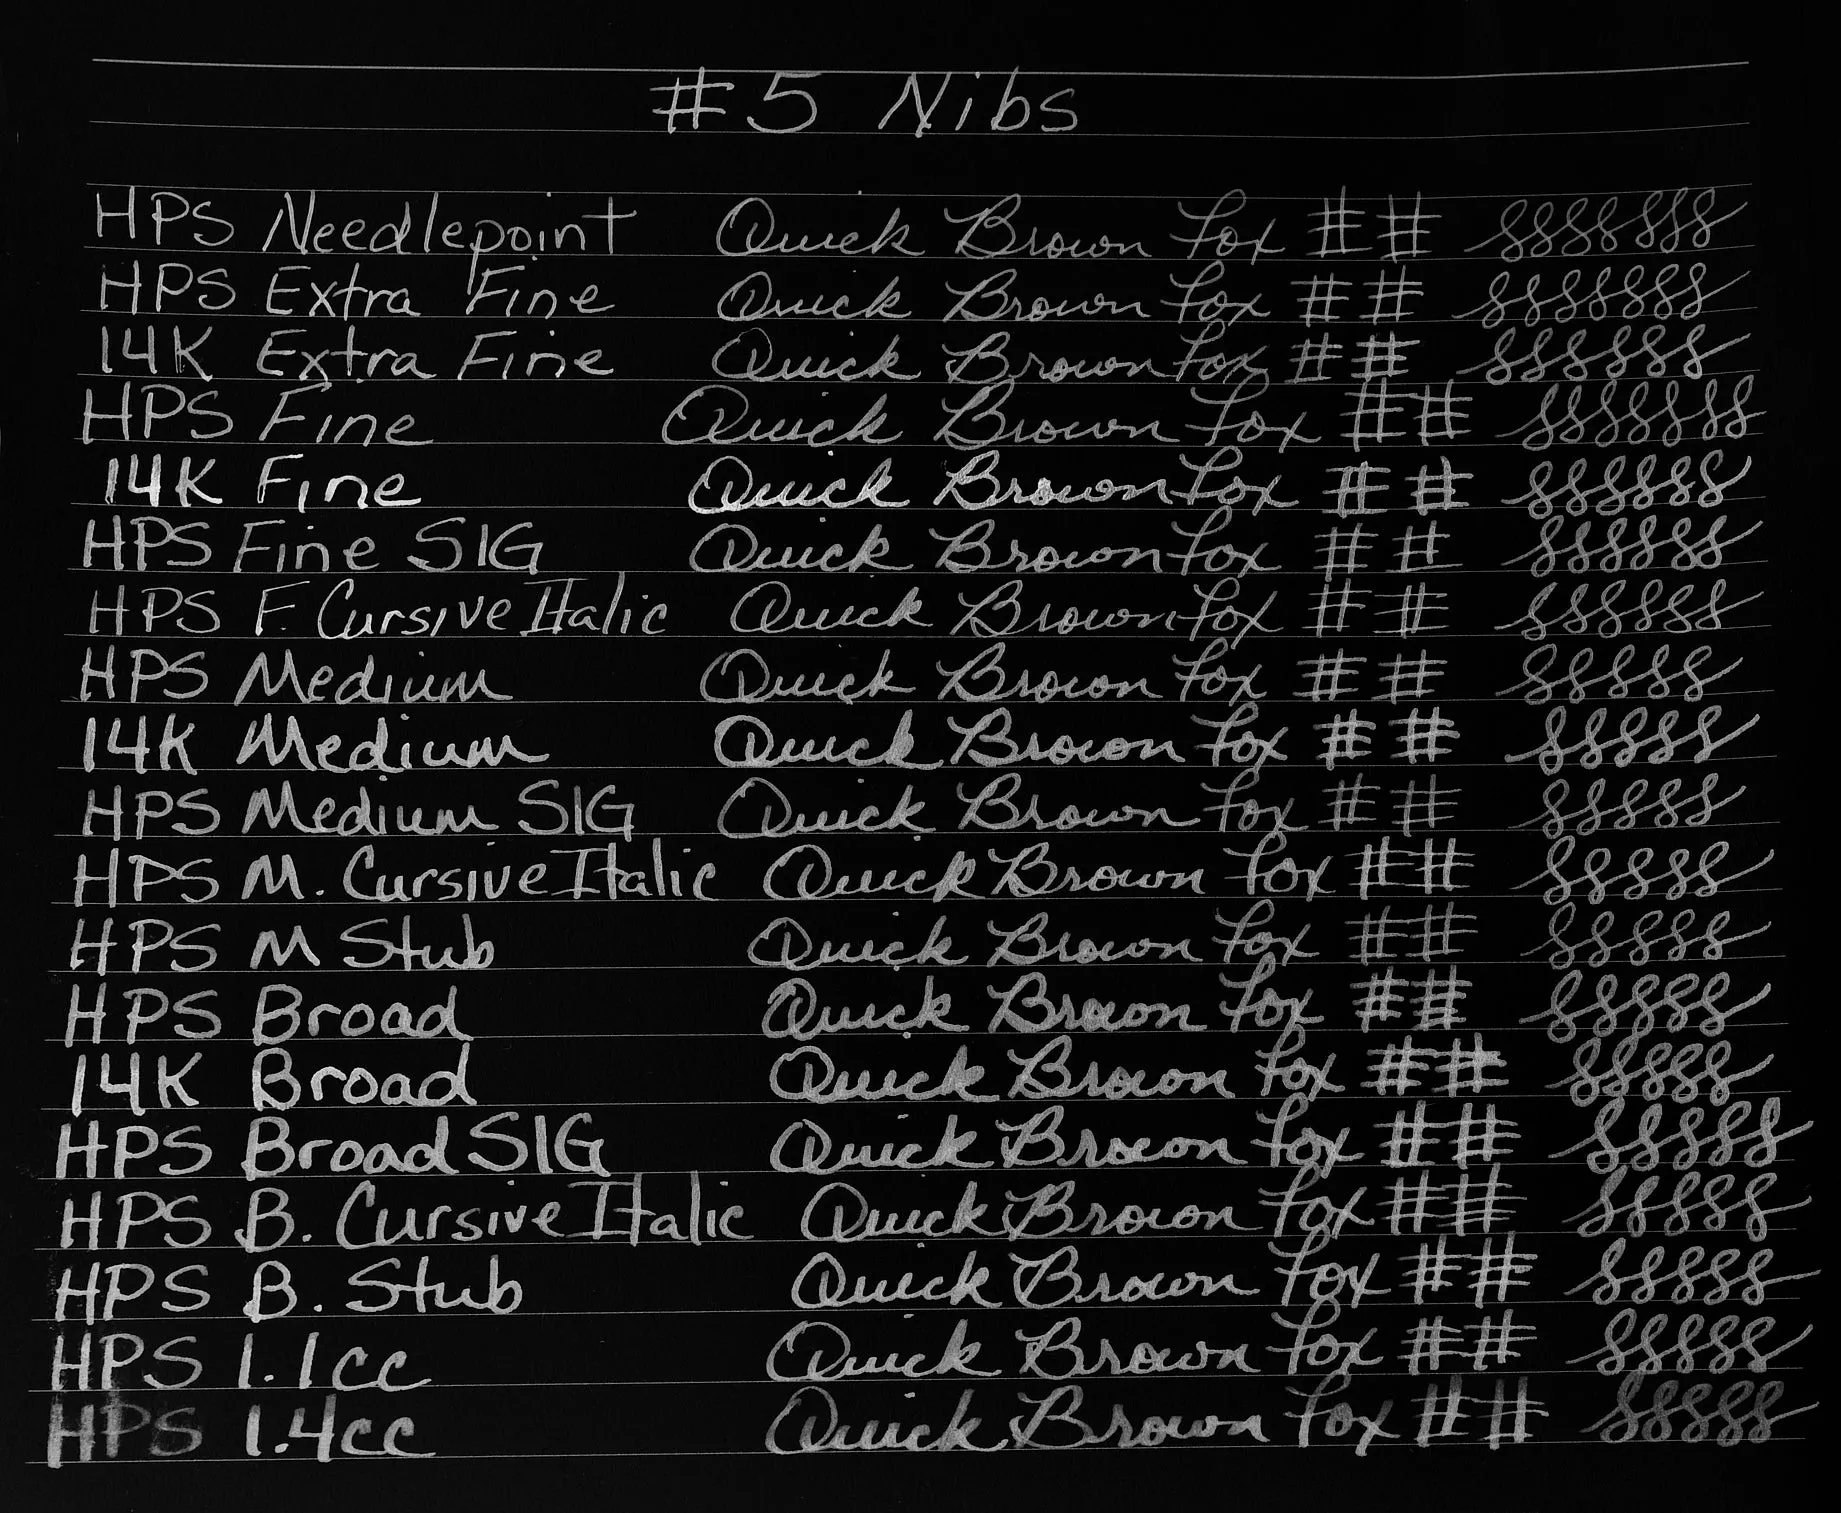 #5 Nibs
HPS Needlepoint Quick Brown Fox # #
HPS Extra Fine Quick Brown Fox # #
14K Extra Fine Quick Brown Fox # #
HPS Fine Quick Brown Fox # #
14K Fine Quick Brown Fox # #
HPS Fine SIG Quick Brown Fox # #
HPS F. Cursive Italic Quick Brown Fox # #
HPS Medium Quick Brown Fox # #
14K Medium Quick Brown Fox # #
HPS Medium SIG Quick Brown Fox # #
HPS M. Cursive Italic Quick Brown Fox # #
HPS M Stub Quick Brown Fox # #
HPS Broad Quick Brown Fox # #
14K Broad Quick Brown Fox # #
HPS Broad SIG Quick Brown Fox # #
HPS B. Cursive Italic Quick Brown Fox # #
HPS B. Stub Quick Brown Fox # #
HPS 1.1cc Quick Brown Fox # #
HPS 1.4cc Quick Brown Fox # #